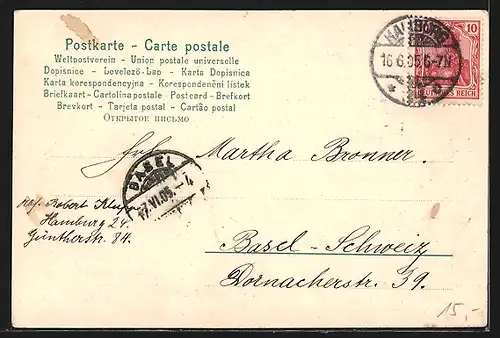 Postkarte - Carte postale
Weltpostverein - Union postale universelle
Dopisnice - Levelező-Lap - Karta Dopisnica
Karta korespondencyjna - Korespondenční lístek
Briefkaart - Cartolina postale Postcard - Brefkort
Brevkort - Tarjeta postal - Cartão postal
Открытое письмо
HAMBURG
16.6.05.6-7N
10
DEUTSCHES REICH
Martha Bronner.
BASEL
17.VI.05.-4
Abs. Robert
Hamburg 24.
Güntherstr. 84.
Basel - Schweiz
Dornacherstr. 39.
15,-